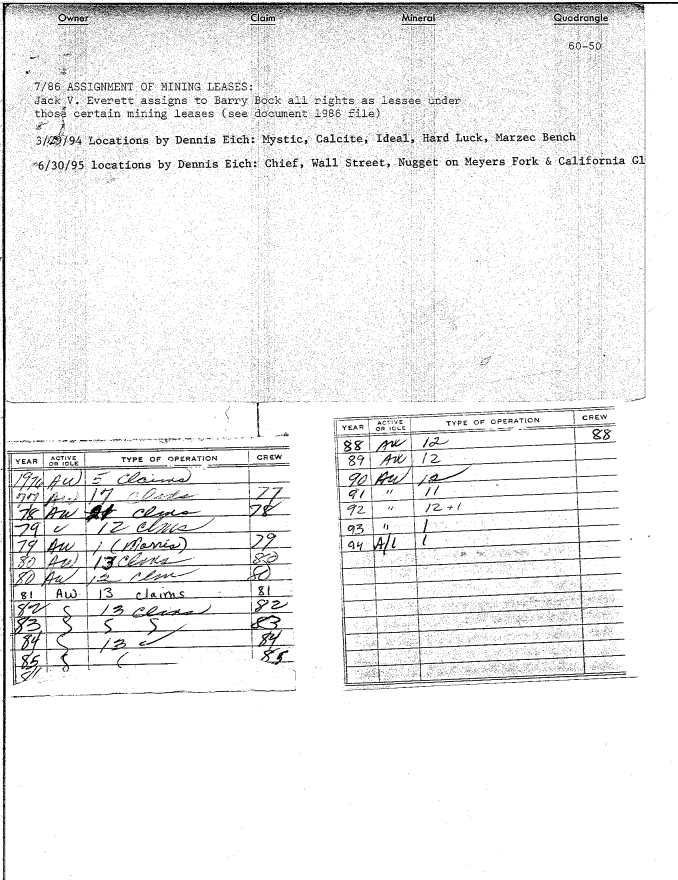 Owner Claim Mineral Quadrangle
60-50
7/86 ASSIGNMENT OF MINING LEASES:
Jack V. Everett assigns to Barry Bock all rights as lessee under
those certain mining leases (see document 1986 file)
/94 Locations by Dennis Eich: Mystic, Calcite, Ideal, Hard Luck, Marzec Bench
6/30/95 locations by Dennis Eich: Chief, Wall Street, Nugget on Meyers Fork & California Gl
YEAR ACTIVE OR IDLE TYPE OF OPERATION CREW
1976 AW 5 Claims
77 AW 17 77
78 AW clms 78
79 " 12 clms
79 AW 1 (Morris) 79
80 AW 13 Clms 80
80 AW 12 Clm 80
81 AW 13 claims 81
82 13 Claims 82
83 83
84 13 84
85 85
YEAR ACTIVE OR IDLE TYPE OF OPERATION CREW
88 AW 12 88
89 AW 12
90 AW 12
91 " 11
92 " 12 + 1
93 " 1
94 A/L 1